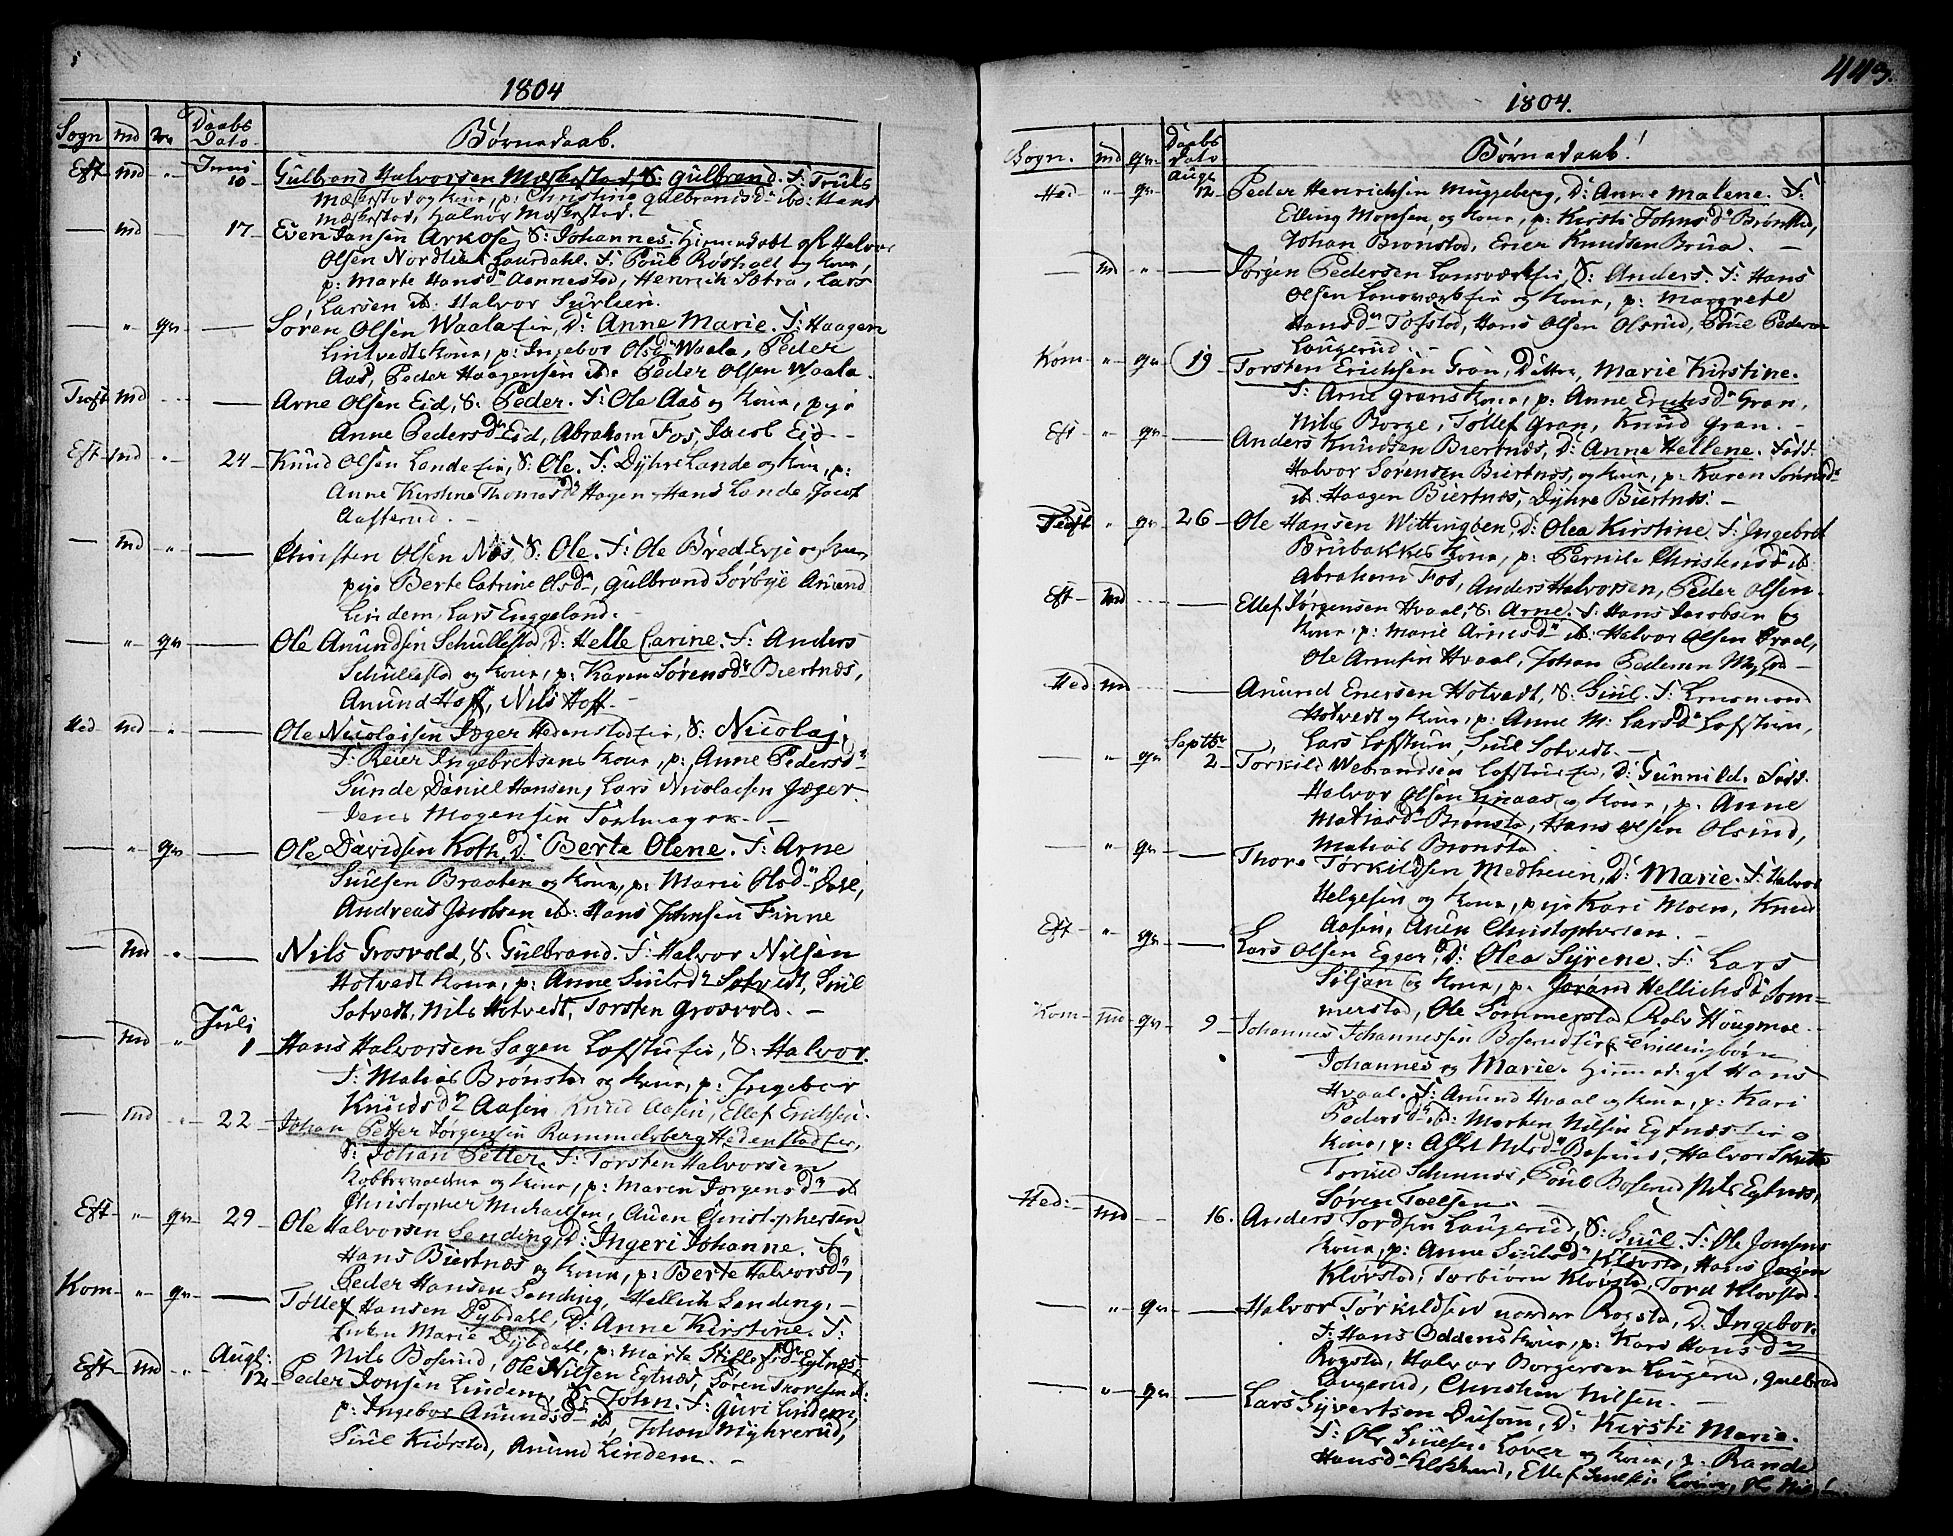 1804
Sogn md qv Daabs Dato Børnedaab.
Eft md Juni 10 Gulbrand Halvorsen Mæhrstad, S: Gulbrand. F: Truls
og Kone, p: Christine Gulbrandsd. ibd: Hans
Halvor
md 17 Even Jansen Arkose, S: Johannes. Hiemedøbt af Halvor
Olsen Nordlie i Laurdahl. F: Poul Røsholt og Kone,
p: Marte Hansd. Aannestad, Henrich Sætra, Lars
Larsen ib: Halvor
qv Søren Olsen Waala, D: Anne Marie. F: Haagen
Lintvedts Kone, p: Ingebor Olsd. Waala, Peder
Aas, Peder Haagensen ib: Peder Olsen Waala.
Tuft md Arne Olsen Eid, S: Peder. F: Ole Aas og Kone, pige
Anne Pedersd. Eid, Abraham Fos, Jacob Eid
Eft md 24 Knud Olsen Lande, S: Ole. F: Dyhre Lande og Kone, p:
Anne Kirstine Thomasd. Hagen, Hans Lande, Jacob
Aasterud.
md Christen Olsen Næs, S: Ole. F: Ole Bred-Evje og Kone,
pige Berte Catrine Olsd., Gulbrand Sørbye, Amund
Lindem, Lars Enggeland.
qv Ole Amundsen Schullestad D: Helle Carine. F: Anders
Schullestad og Kone, p: Karen Sørensd. Biertnæs,
Amund Hoff, Nils Hoff.
Hed md Ole Nicolaisen Jæger Hedenstad, S: Nicolaj,
F: Reier Ingebretsens Kone, p: Anne Pedersd.
Sunde Daniel Hansen, Lars Nicolaisen Jæger.
Jens Mogensen
qv Ole Davidsen Koth, D: Berte Olene. F: Arne
Siulsen Braaten og Kone, p: Marie Olsd.
Andreas Jacobsen ib: Hans Johnsen Finne
md Nils Grosvold, S: Gulbrand. F: Halvor Nilsen
Hotvedt Kone, p: Anne Siulsd. Sotvedt, Siul
Sotvedt, Nils Hotvedt, Torsten Grosvold.
md Juli 1 Hans Halvorsen Sagen, S: Halvor.
F: Matias Brønstad og Kone, p: Ingebor
Knudsd. Aasen Knud Aasen, Ellef Erichsen.
md 22 Johan Petter Jørgensen Rammelsberg Hedenstad,
S: Johan Petter, F: Torsten Halvorsen
og Kone, p: Maren Jørgensd. ib
Christopher Michaelsen, Auen Christophersen
Eft qv 29 Ole Halvorsen Sanding, D: Ingeri Johanne. F:
Hans Biertnæs og Kone, p: Berte Halvorsd.,
Peder Hansen Sanding, Hellich Sanding.
Kom qv Tollef Hansen Dybdahl, D: Anne Kirstine. F:
Marie Dybdahl, p: Marte Egtnæs
Nils Boserud, Ole Nilsen Egtnæs, Søren Thoresen
Eft md Augt: 12 Peder Jonsen Lindem, S: John. F: Guri Lindem,
p: Ingebor Amundsd. ib, Johan Myhrerud,
Siul Kiørstad, Amund Lindem.
443.
1804.
Sogn. md qv. Daabs Dato Børnedaab!
Hed qv Augt 12 Peder Henrichsen Muggeberg, D: Anne Malene. F:
Elling Monsen og Kone, p: Kirsti Johnsd. Brønstad,
Johan Brønstad, Erier Knudsen Brua.
md Jørgen Pedersen, S: Anders. F: Hans
Olsen og Kone, p: Margrete
Hansd. Tofstad, Hans Olsen Olsrud, Poul Pedersen
Laugerud.
Kom qv 19 Torsten Erichsen Gran, Datter, Marie Kirstine.
F: Arne Grans Kone, p: Anne Erichsd. Gran,
Nils Borge, Tollef Gran, Knud Gran.
Eft qv Anders Knudsen Biertnæs, D: Anne Hellene. Fadd:
Halvor Sørensen Biertnæs, og Kone, p: Karen Sørensd.
ib. Haagen Biertnæs, Dyhre Biertnæs.
Tuft qv 26 Ole Hansen Wittingben, D: Olea Kirstine. F: Ingebret
Brubakkes Kone, p: Pernile Christensd. ib
Abraham Fos, Anders Halvorsen, Peder Olsen.
Eft md Ellef Jørgensen Hvaal, S: Arne. F: Hans Jacobsen og
Kone, p: Marie Arnesd. ib: Halvor Olsen Hvaal,
Ole Arnesen Hvaal, Johan Pedersen
Hed md Amund Enersen Hotvedt, S: Siul. F:
Hotvedt og Kone, p: Anne M: Larsd.
Lars, Siul Sotvedt.
qv Septbr 2 Torkild Webrandsen, D: Gunnild. Fadd:
Halvor Olsen og Kone, p: Anne
Matiasd. Brønstad, Hans Olsen Olsrud,
Matias Brønstad
qv Thore Torkildsen Medheien, D: Marie. F: Halvor
Helgesen og Kone, pige Kari Moen, Knud
Aasen, Auen Christophersen.
Eft qv Lars Olsen Egger, D: Olea Syrene. F: Lars
Siljan og Kone, p. Jorand Hellichsd. Som=
merstad, Ole Sommerstad, Rolv Hougmoe.
Kom md qv 9 Johannes Johannessen Boserud, Tvillingbørn
Johannes og Marie. Hiemmed: af Hans
Hvaal. F: Amund Hvaal og Kone, p: Kari
Pedersd. ib: Morten Nilsen Egtnæs
Kone, p: Nilsd. Boserud, Halvor
Poul Boserud Nils Egtnæs,
Søren Toelsen.
Hed: md 16. Anders Tordsen Laugerud, S: Siul. F: Ole Jonsens
Kone, p: Anne Siulsd. Kløvstad, Hans Jørgen
Kløvstad, Torbiørn Kløvstad, Tord Kløvstad.
qv Halvor Torkildsen nordre Rogstad, D. Ingebor.
F: Hans Oddens Kone, p: Kari Hansd.
Rogstad, Halvor Borgersen Laugerud, Gulbrand
Laugerud, Christen Nilsen.
qv Lars Syvertsen Dusom, D. Kirsti Marie.
F: Ole Siulsen Lover og Kone, p: Rande
Hansd., Ellef Siulsen